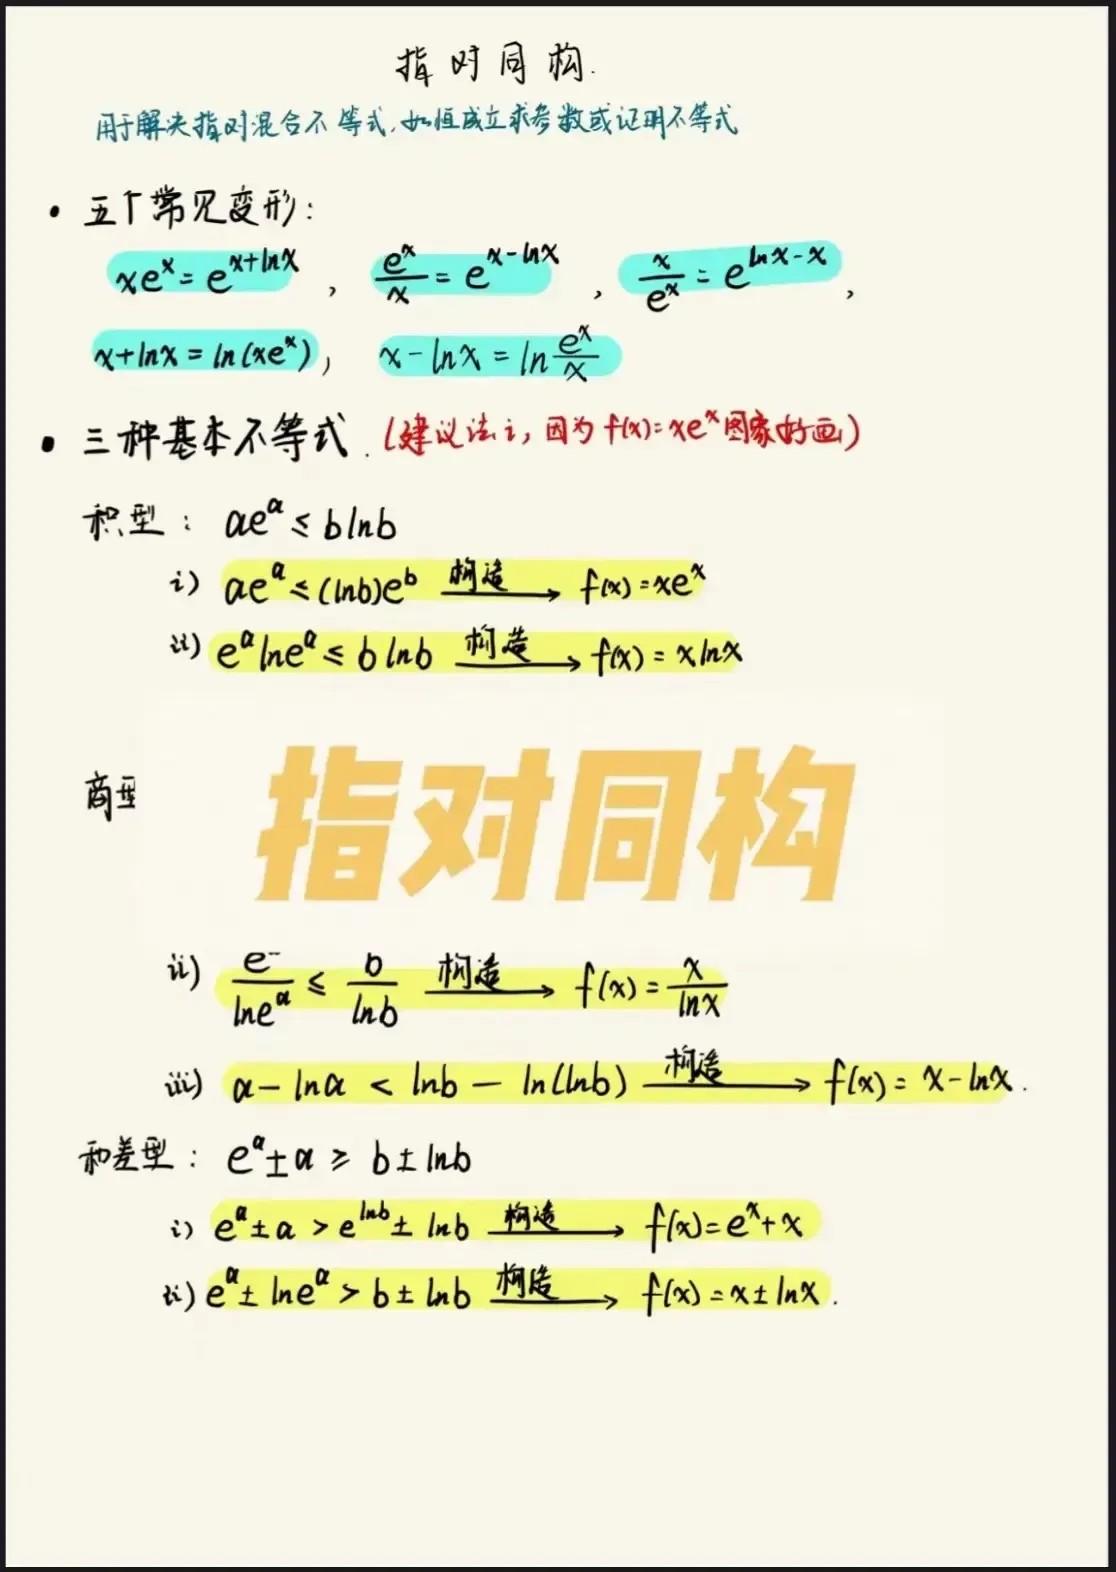 指对同构.
用于解决指对混合不等式,如恒成立求参数或证明不等式
• 五个常见变形:
xeˣ = e^(x+lnx) , eˣ/x = e^(x-lnx) , x/eˣ = e^(lnx-x) ,
x+lnx = ln(xeˣ) , x-lnx = ln eˣ/x
• 三种基本不等式. (建议法i, 因为f(x)=xeˣ图象好画)
积型: aeᵃ ≤ blnb
i) aeᵃ ≤ (lnb)eᵇ 构造 → f(x)=xeˣ
ii) eᵃlneᵃ ≤ blnb 构造 → f(x)=xlnx
商型
指对同构
ii) e/lneᵃ ≤ b/lnb 构造 → f(x)=x/lnx
iii) a-lna < lnb-ln(lnb) 构造 → f(x)=x-lnx.
和差型: eᵃ±a ≥ b±lnb
i) eᵃ±a > e^(lnb)±lnb 构造 → f(x)=eˣ+x
ii) eᵃ±lneᵃ > b±lnb 构造 → f(x)=x±lnx.